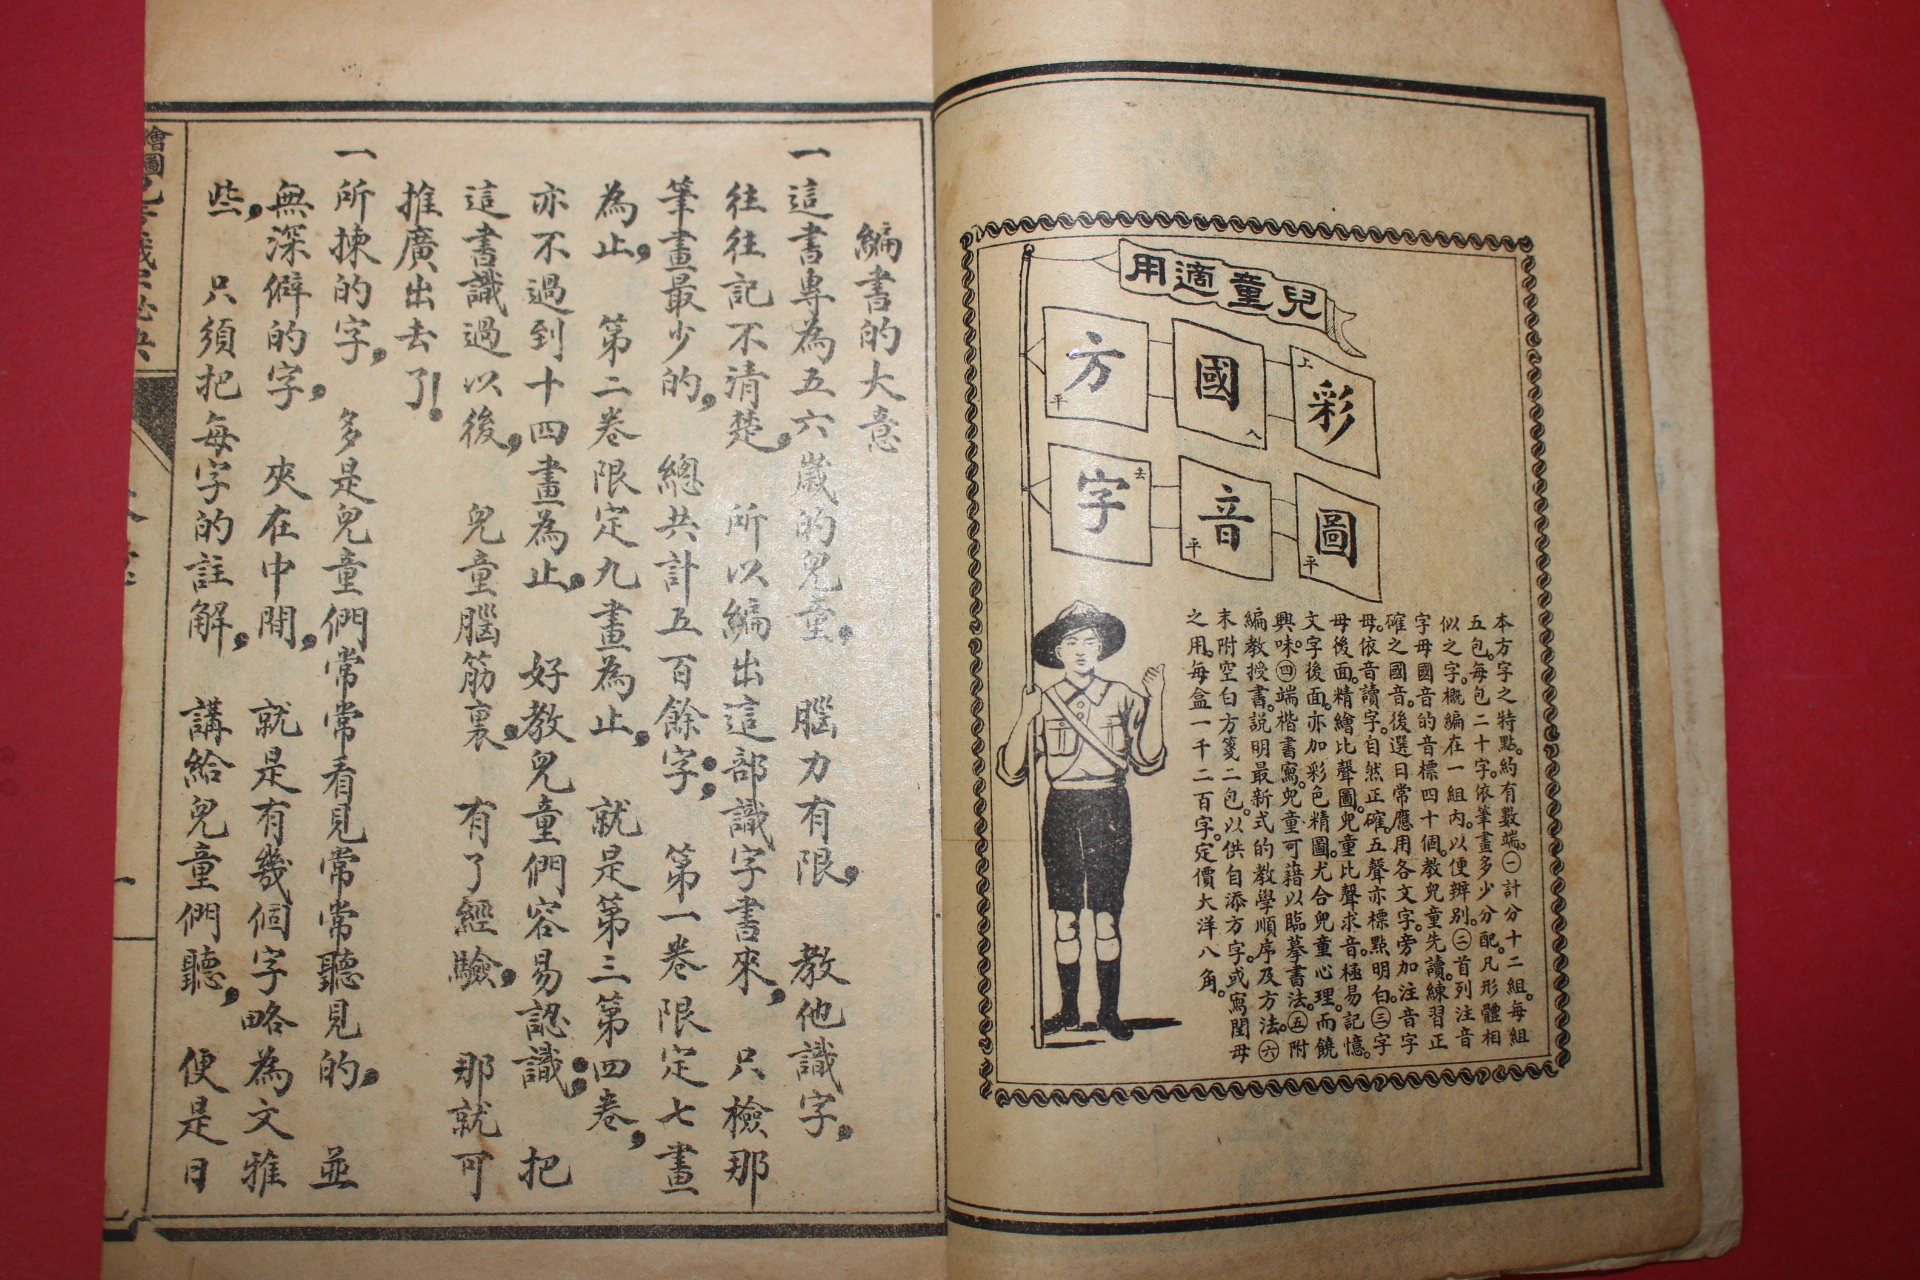 兒童適用
彩圖
國音
方字
上
平
入
平
平
去
本方字之特點。約有數端。㊀計分十二組。每組
五包。每包二十字。依筆畫多少分配。凡形體相
似之字。概編在一組內。以便辨別。㊁首列注音
字母國音的音標四十個。教兒童先讀練習正
確之國音。後選日常應用各文字。旁加注音字
母。依音讀字。自然正確。五聲亦標點明白。㊂字
母後面。精繪比聲圖。兒童比聲求音。極易記憶。
文字後面。亦加彩色精圖。尤合兒童心理。而饒
興味。㊃端楷書寫。兒童可藉以臨摹書法。㊄附
編教授書。說明最新式的教學順序及方法。㊅
末附空白方箋二包。以供自添方字。或寫閏母
之用。每盒一千二百字。定價大洋八角。
編書的大意
一這書專為五六歲的兒童，腦力有限，教他識字，
往往記不清楚，所以編出這部識字書來，只檢那
筆畫最少的，總共計五百餘字；第一卷限定七畫
為止，第二卷限定九畫為止，就是第三第四卷，
亦不過到十四畫為止，好教兒童們容易認識；把
這書識過以後，兒童腦筋裏，有了經驗，那就可
推廣出去了！
一所揀的字，多是兒童們常常看見常常聽見的，並
無深僻的字，夾在中間，就是有幾個字略為文雅
些，只須把每字的註解，講給兒童們聽，便是日
繪圖
一